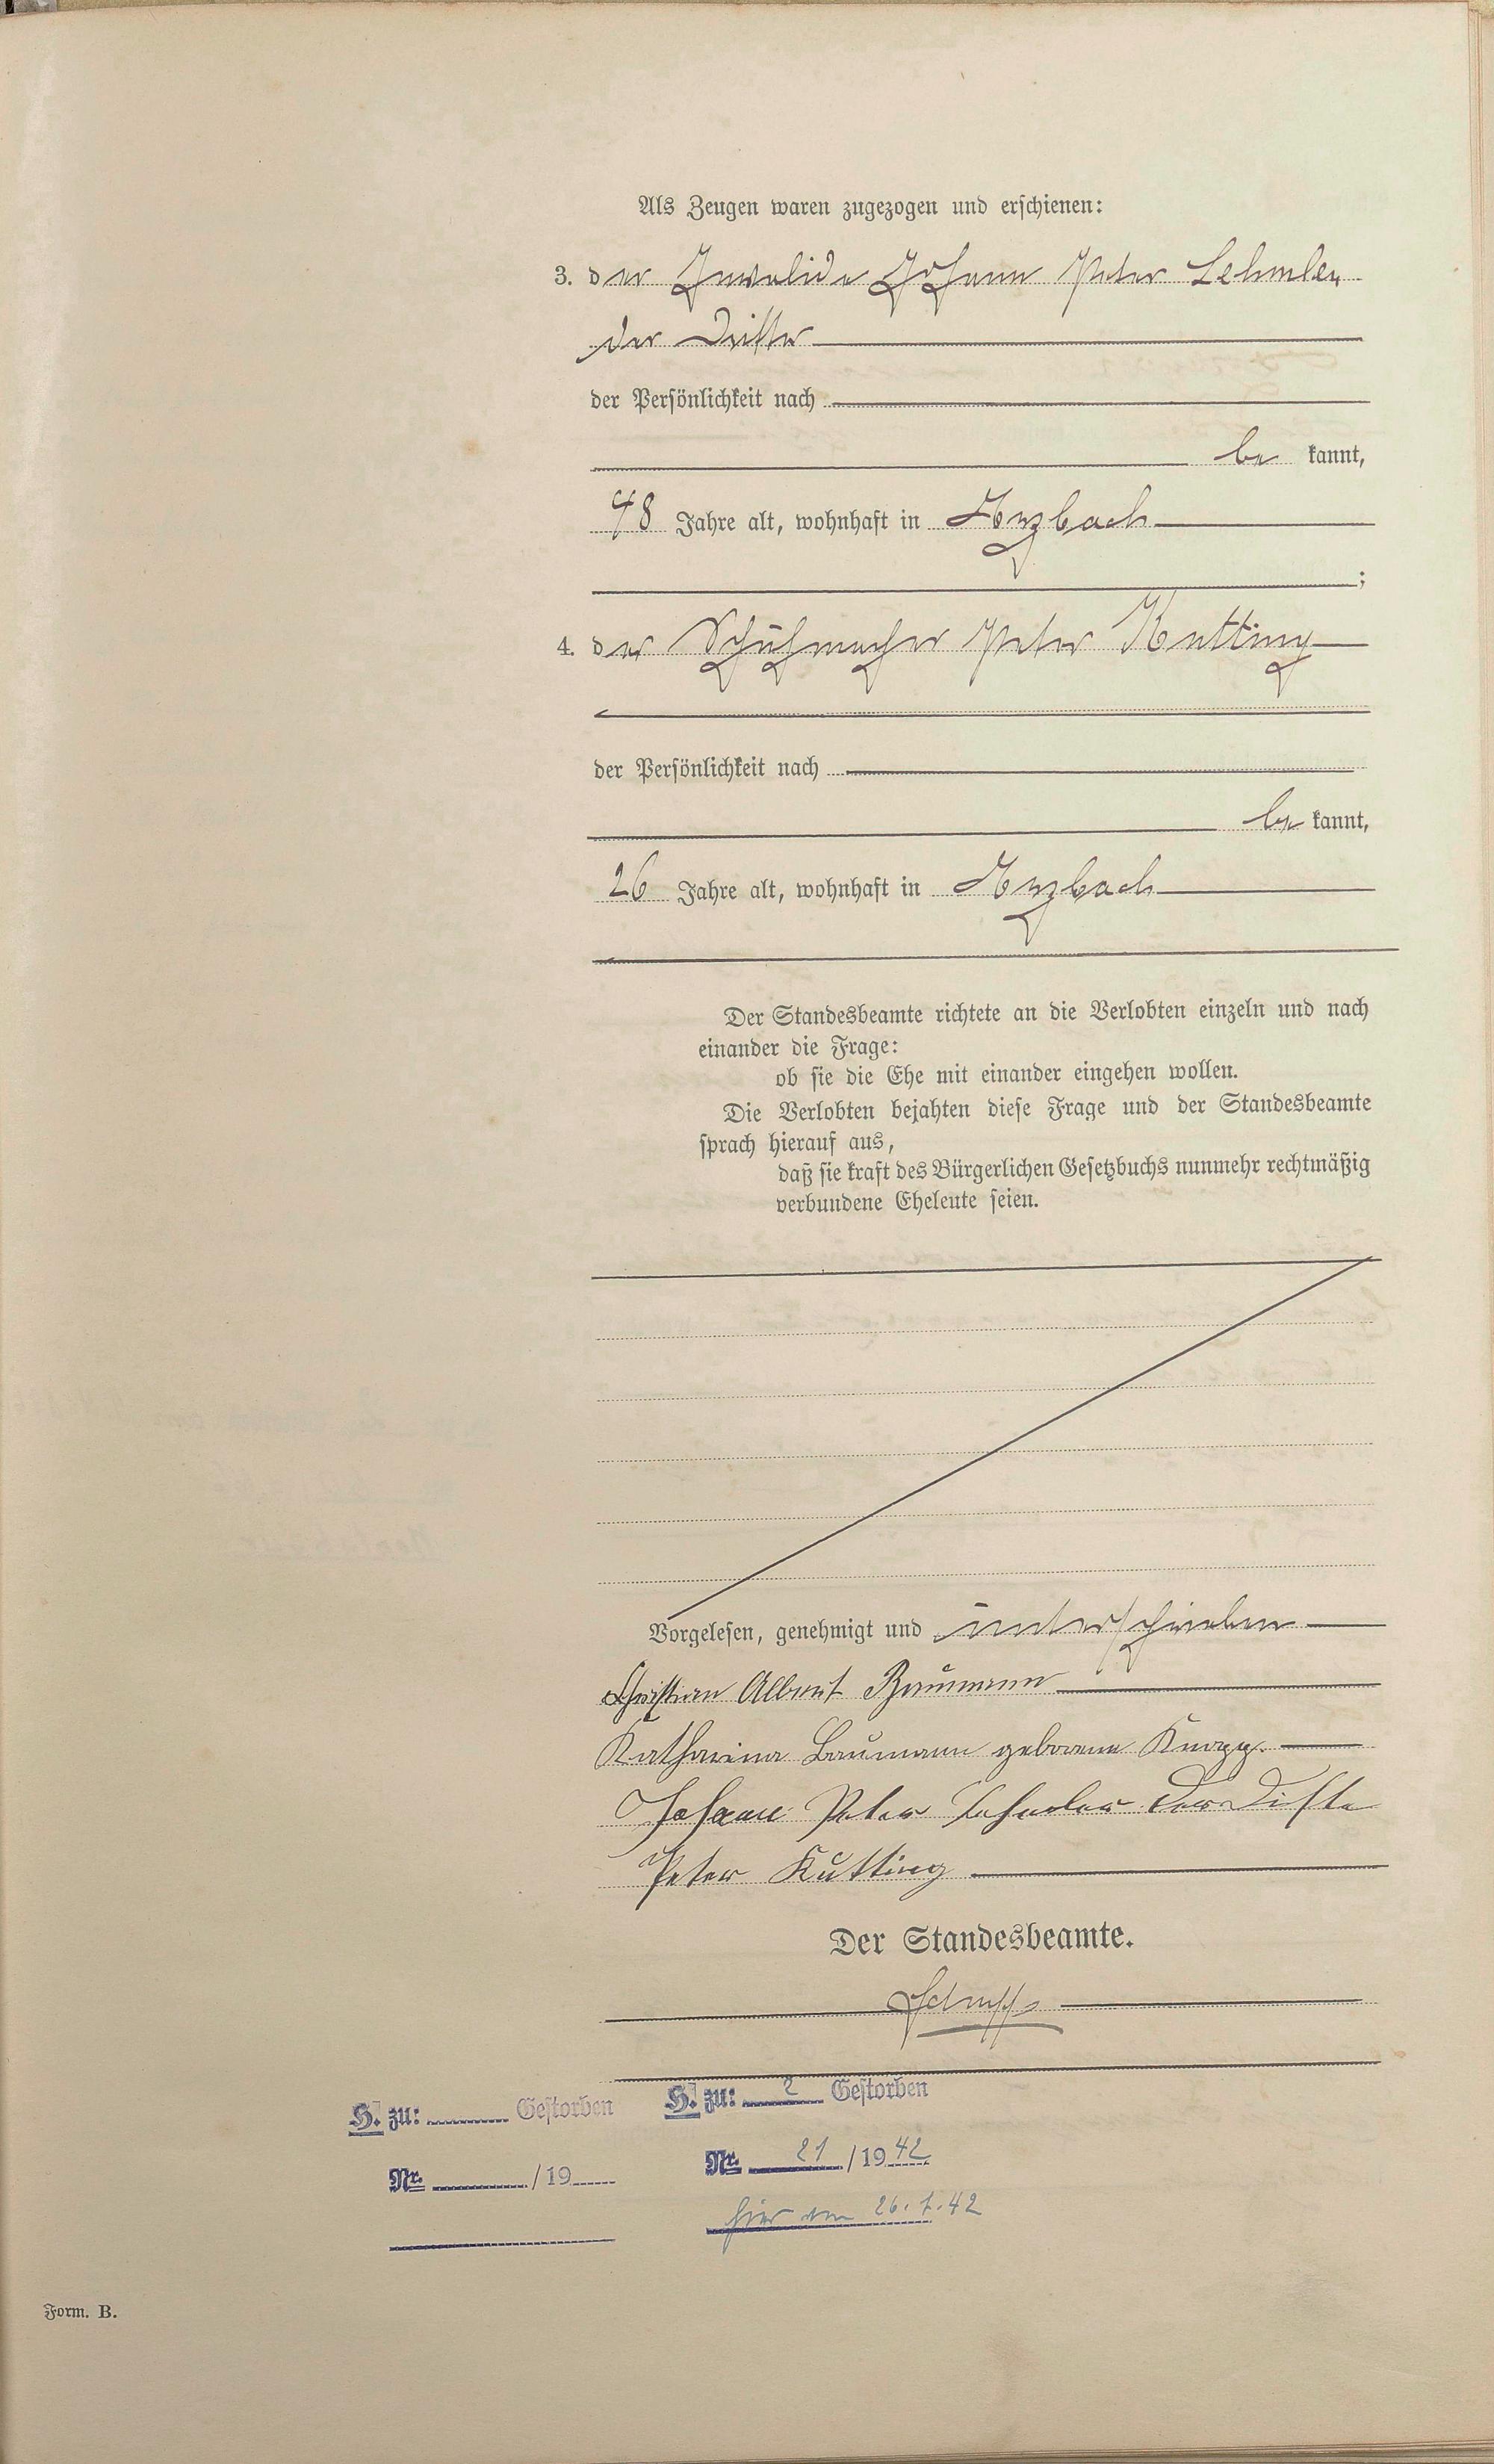 Als Zeugen waren zugezogen und erschienen:
3. der Invalide Johann Peter Lehmler
der Dritte
der Persönlichkeit nach
be kannt,
48 Jahre alt, wohnhaft in
;
4. der Schuhmacher Peter Kutting
der Persönlichkeit nach
be kannt,
26 Jahre alt, wohnhaft in
Der Standesbeamte richtete an die Verlobten einzeln und nach
einander die Frage:
ob sie die Ehe mit einander eingehen wollen.
Die Verlobten bejahten diese Frage und der Standesbeamte
sprach hierauf aus,
daß sie kraft des Bürgerlichen Gesetzbuchs nunmehr rechtmäßig
verbundene Eheleute seien.
Vorgelesen, genehmigt und unterschrieben
Christian Albert Baumann
Katharina Baumann geborene Knopp.
Johann Peter Lehmler der Dritte
Peter Kutting
Der Standesbeamte.
H. zu: Gestorben
H. zu: 2 Gestorben
Nr. /19
Nr. 21 /1942
hier am 26.7.42
Form. B.